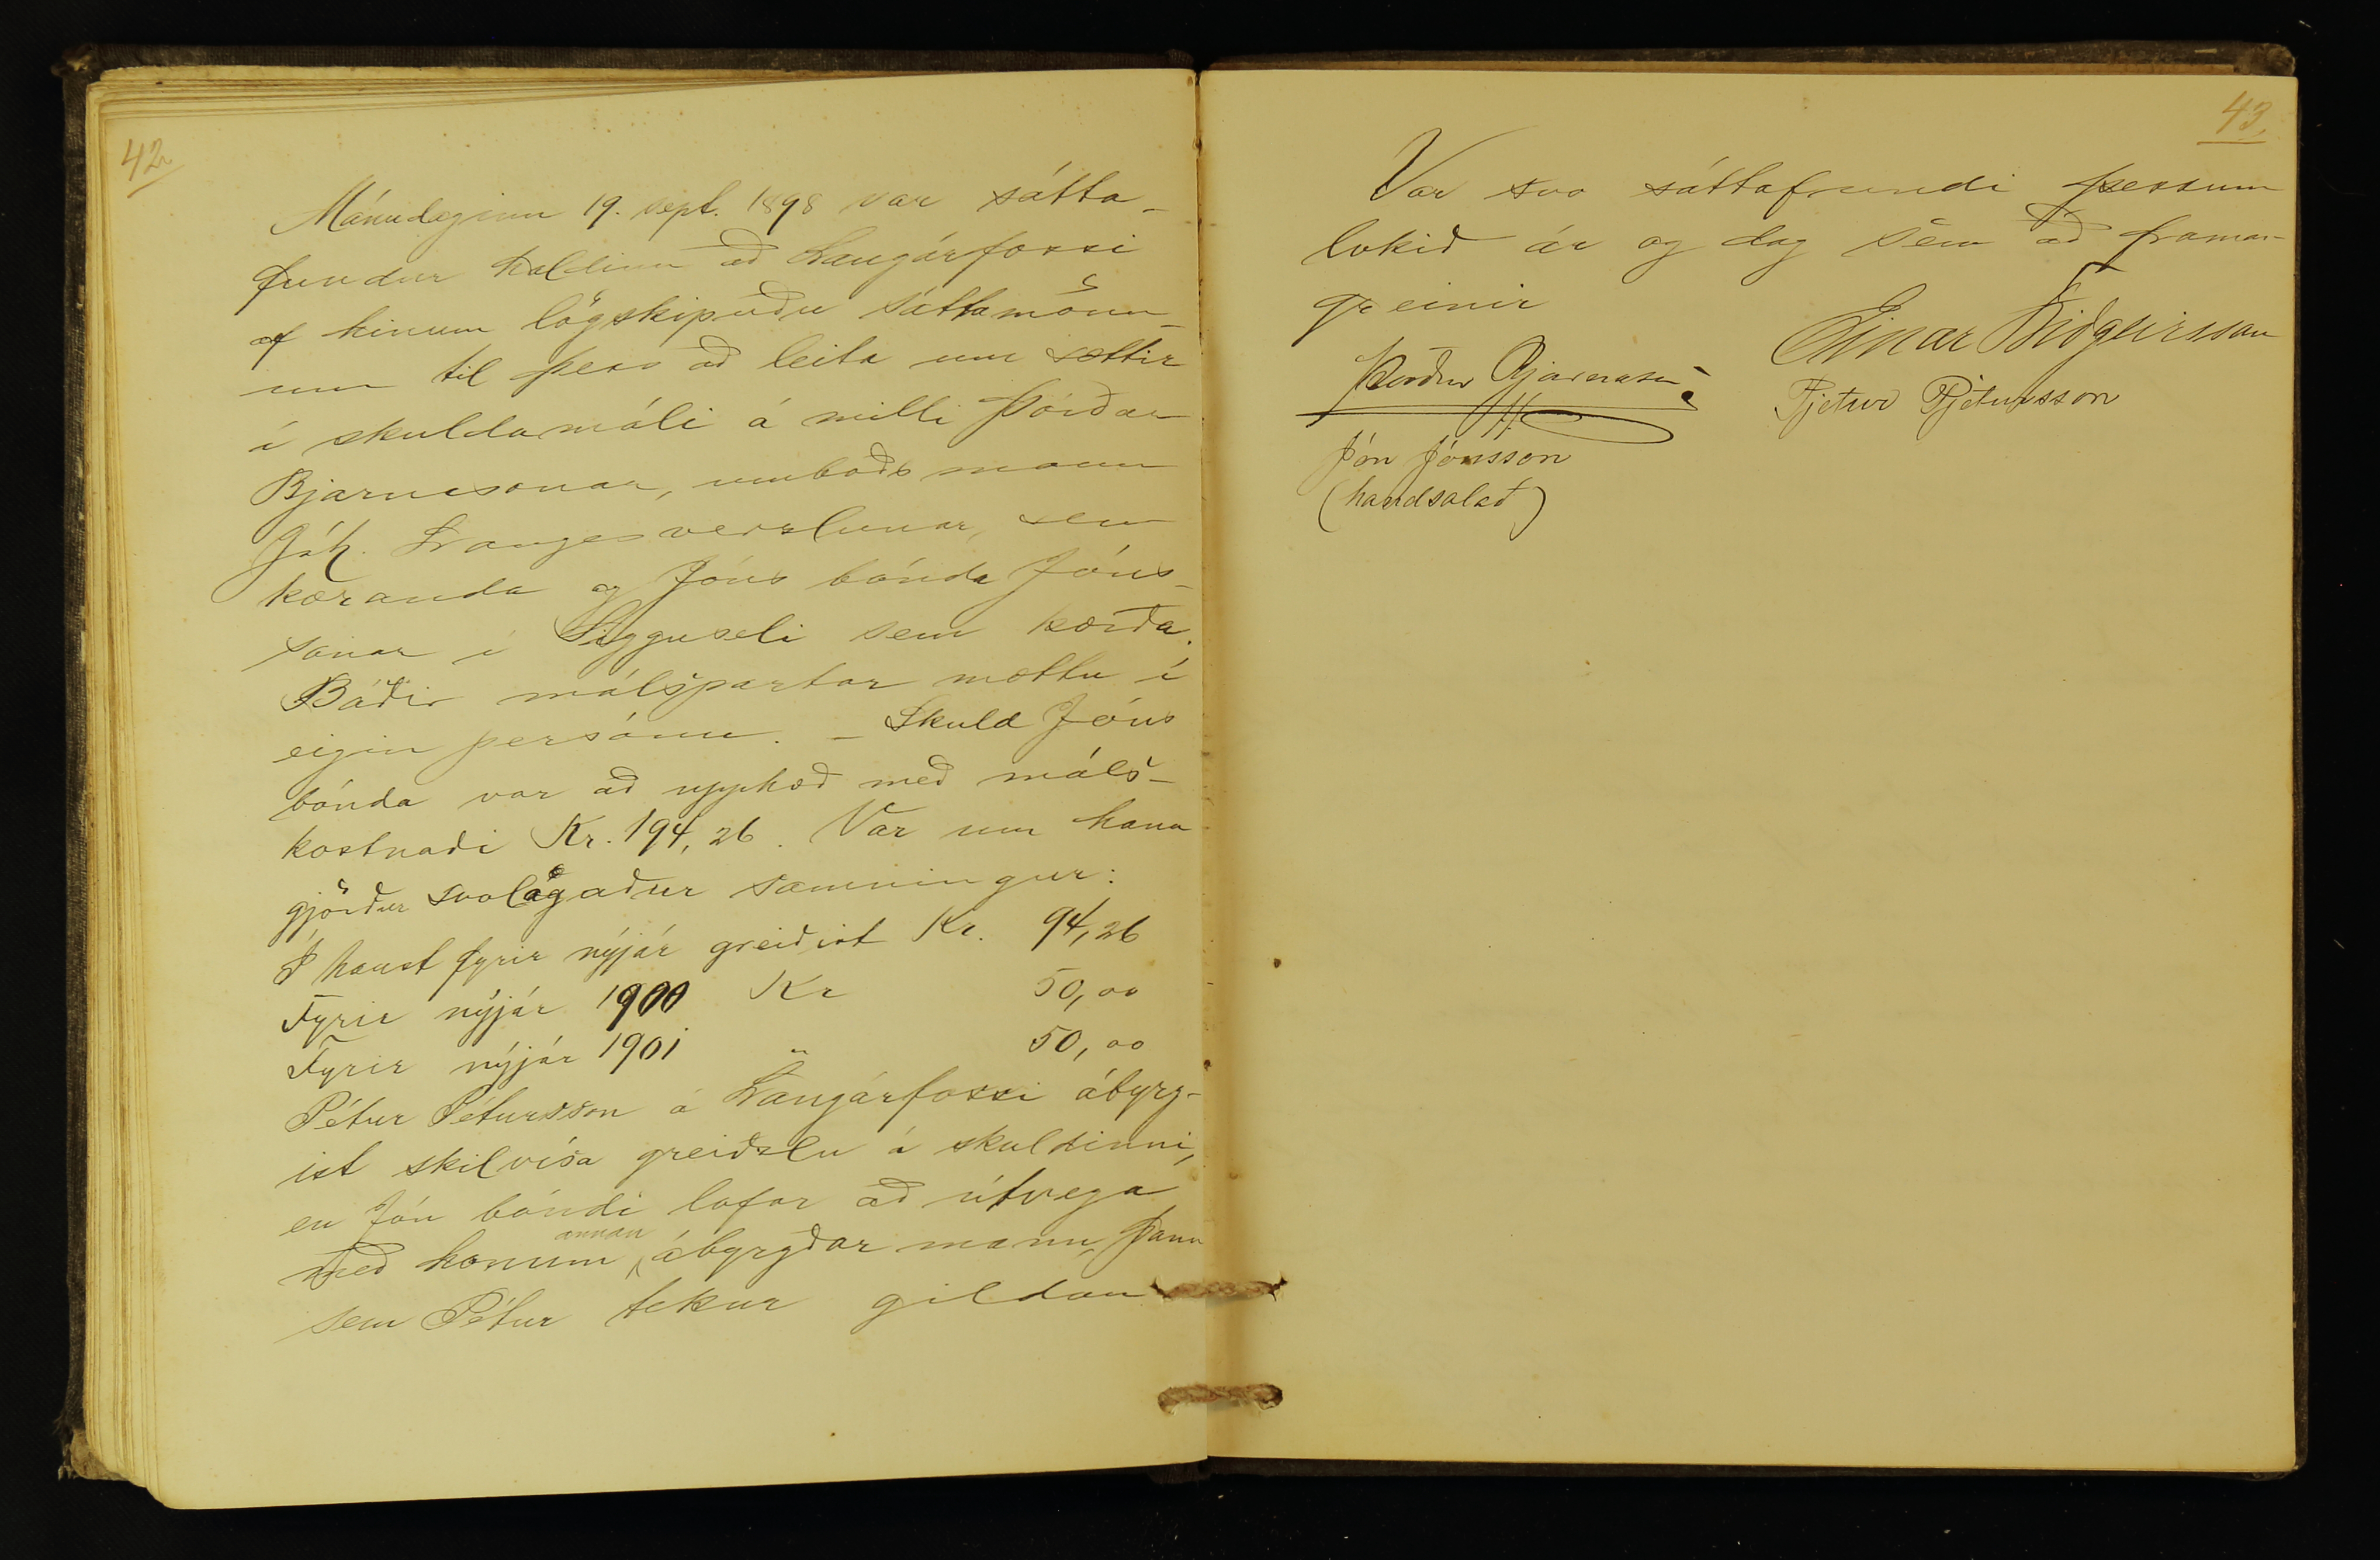 42
Mánudaginn 19. sept. 1898 var sátta-
fundur haldinn að Langárfossi
af hinum lögskipuðu sáttamönn-
um til þess að leita um sættir
í skuldamáli á milli Þórðar
Bjarnasonar, umboðsmann
Jóh. Langes verzlunar, sem
kæranda og Jóns bónda Jóns-
sonar í Sigguseli sem kærða.
Báðir málspartar mættu í
eigin persónu. – Skuld Jóns
bónda var að upphæð með máls-
kostnaði Kr. 194,26. Var um hana
gjörður svolagaður samningur:
Í haust fyrir nýjár greiðist Kr. 94,26
Fyrir nýjár 1900 Kr 50,00
Fyrir nýjár 1901 " 50,00
Pétur Pétursson á Langárfossi ábyrg-
ist skilvísa greiðslu á skuldinni,
en Jón bóndi lofar að útvega
með honum annan ábyrgðarmann, þann
sem Pétur tekur gildan
43.
Var svo sáttafundi þessum
lokið ár og dag sem að framan-
greinir
Þórður Bjarnason
Jón Jónsson
(handsalað)
Einar Friðgeirsson
Pjetur Pjetursson